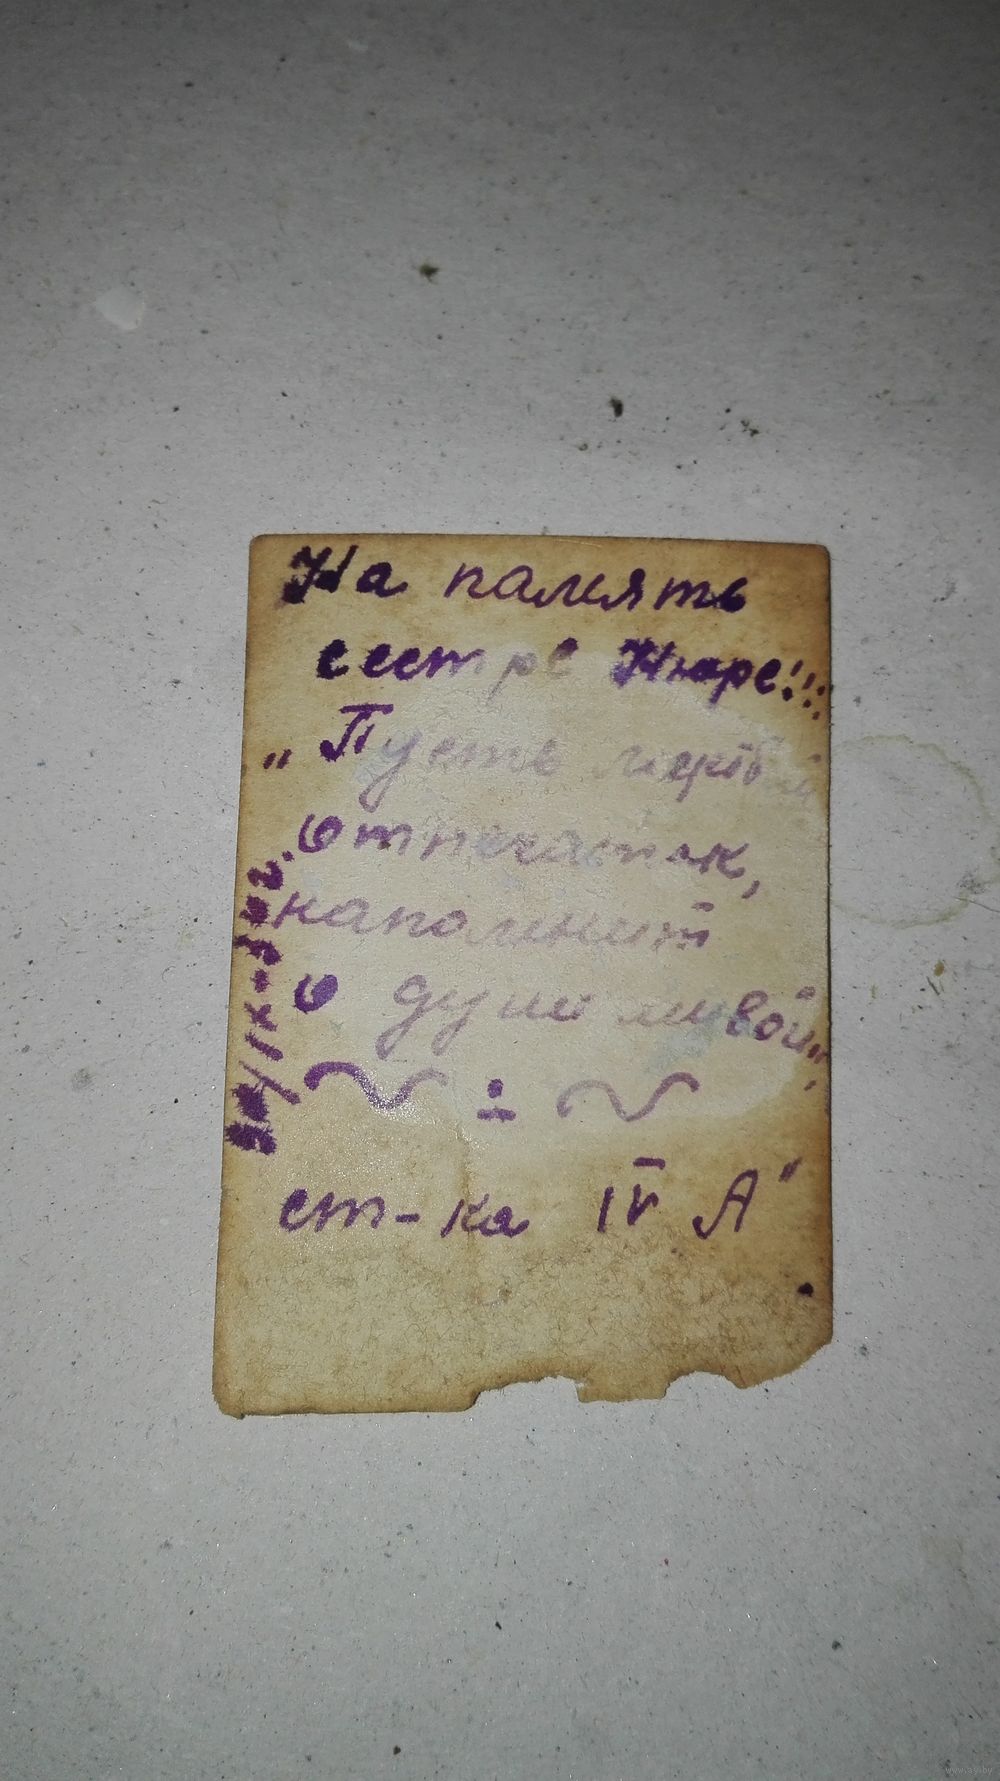 На память
сестре Нюре!!!
„Пусть мертвый
отпечаток,
напомнит
о души живой"
ст-ка IV А"
www.ay.by